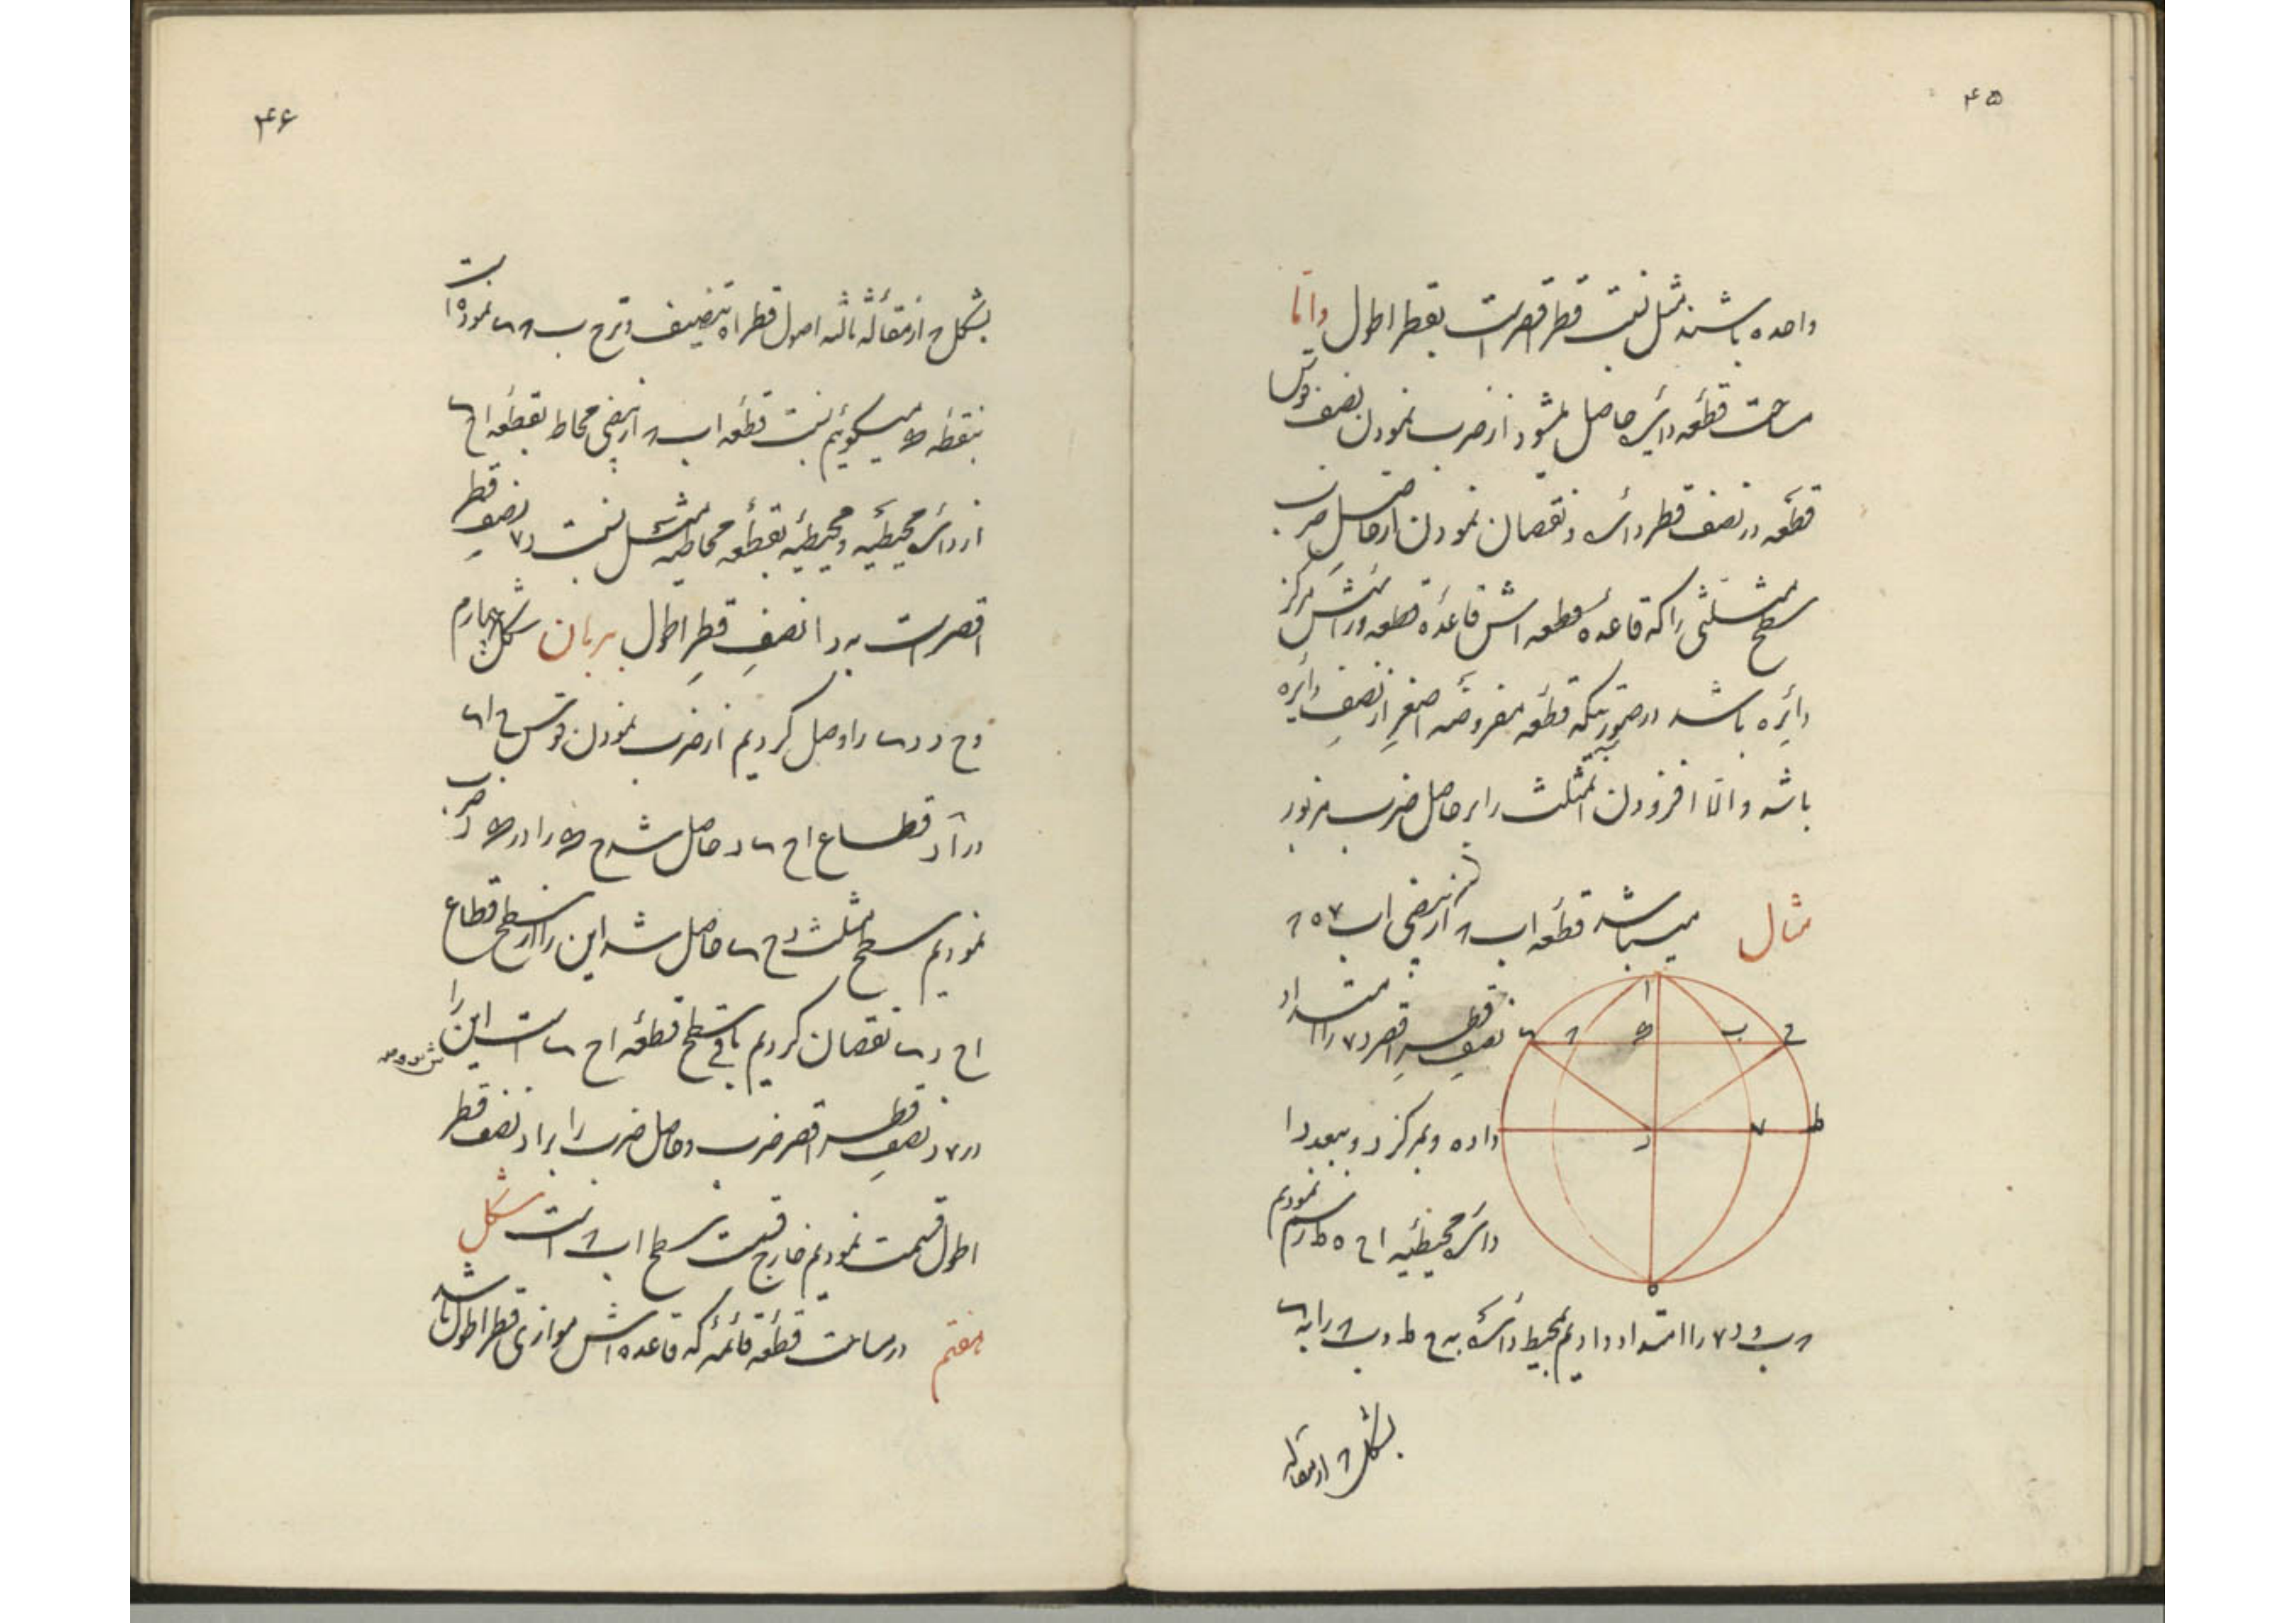 ۴۵
واحده باشند مثل نسبت قطر اقصر است بقطر اطول و اما
مساحت قطعه دائره حاصل میشود از ضرب نمودن نصف قوس
قطعه در نصف قطر دائره و نقصان نمودن از حاصل ضرب
سطح مثلثی را که قاعده قطعه اش قاعده قطعه و راسش مرکز
دائره باشد در صورتیکه قطعه مفروضه اصغر از نصف دائره
باشد و الّا افزودن المثلث را بر حاصل ضرب مزبور
مثال میباشد قطعه ا ب ۸ از بیضی ا ب ۷ ه ۸
نصف قطر اقصر د ۷ را امتداد
داده و بمرکز د و ببعد د ا
دائره محیطیه ا ح ه ط رسم نمودیم
۸ ب و د ۷ را امتداد دادیم بمحیط دائره به ح ط و ب ۸ را به
ا ح ب د ط ۷ ه
بشکل ۸ از مقاله
۴۶
بشکل ح از مقاله ثالثه اصول قطر ا ه تنصیف وتر ح ب نموده است
بنقطه میگوئیم نسبت قطعه ا ب ۸ از بیضی محاط بقطعه ا ح
از دائره محیطیه و محیطیه بقطعه محاطیه مثل نسبت د ۷ نصف قطر
اقصر است به د ا نصف قطر اطول برهان شکل چهارم
د ح د را وصل کردیم از ضرب نمودن قوس ح ا
در ا د قطاع ا ح د حاصل شد ح را در د ضرب
نمودیم سطح مثلث د ح حاصل شد این را از سطح قطاع
ا ح د نقصان کردیم باقی سطح قطعه ا ح است این را
در ۷ د نصف قطر اقصر ضرب و حاصل ضرب را بر ا د نصف قطر
اطول قسمت نمودیم خارج قسمت سطح ا ب ۸ است شکل
هفتم در مساحت قطعه قائمه که قاعده اش موازی قطر اطول باشد